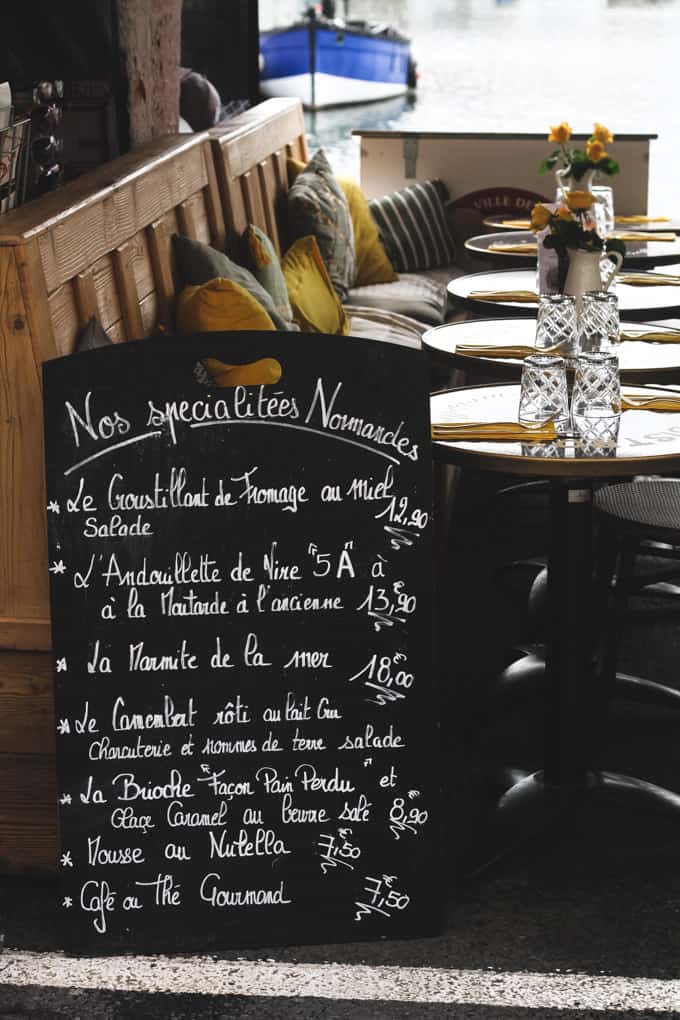 VILLE DE
Nos specialitées Normandes
* Le Croustillant de Fromage au miel
Salade 12,90€
* L'Andouillette de Vire "5 A" à
à la Moutarde à l'ancienne 13,90€
* La Marmite de la mer 18,00€
* Le Camembert rôti au lait Cru
Charcuterie et pommes de terre salade
* La Brioche "Façon Pain Perdu" et
Glaçe Caramel au beurre salé 8,90€
* Mousse au Nutella 7,50€
* Café ou Thé Gourmand 7,50€